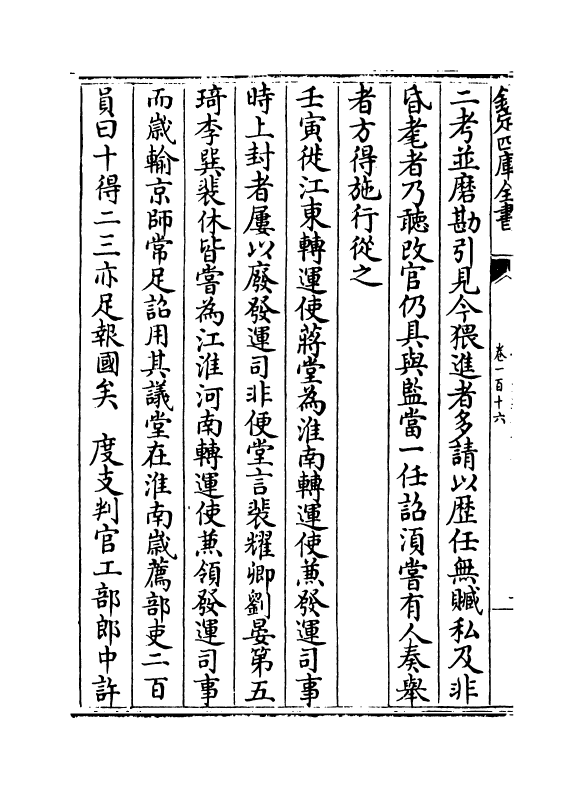 欽定四庫全書
卷一百十六
二考並磨勘引見今猥進者多請以歴任無贓私及非
昏耄者乃聽改官仍具與監當一任詔須嘗有人奏舉
者方得施行從之
壬寅徙江東轉運使蔣堂為淮南轉運使兼發運司事
時上封者屢以廢發運司非便堂言裴耀卿劉晏第五
琦李巽裴休皆嘗為江淮河南轉運使兼領發運司事
而歳輸京師常足詔用其議堂在淮南歳薦部吏二百
員曰十得二三亦足報國矣 度支判官工部郎中許